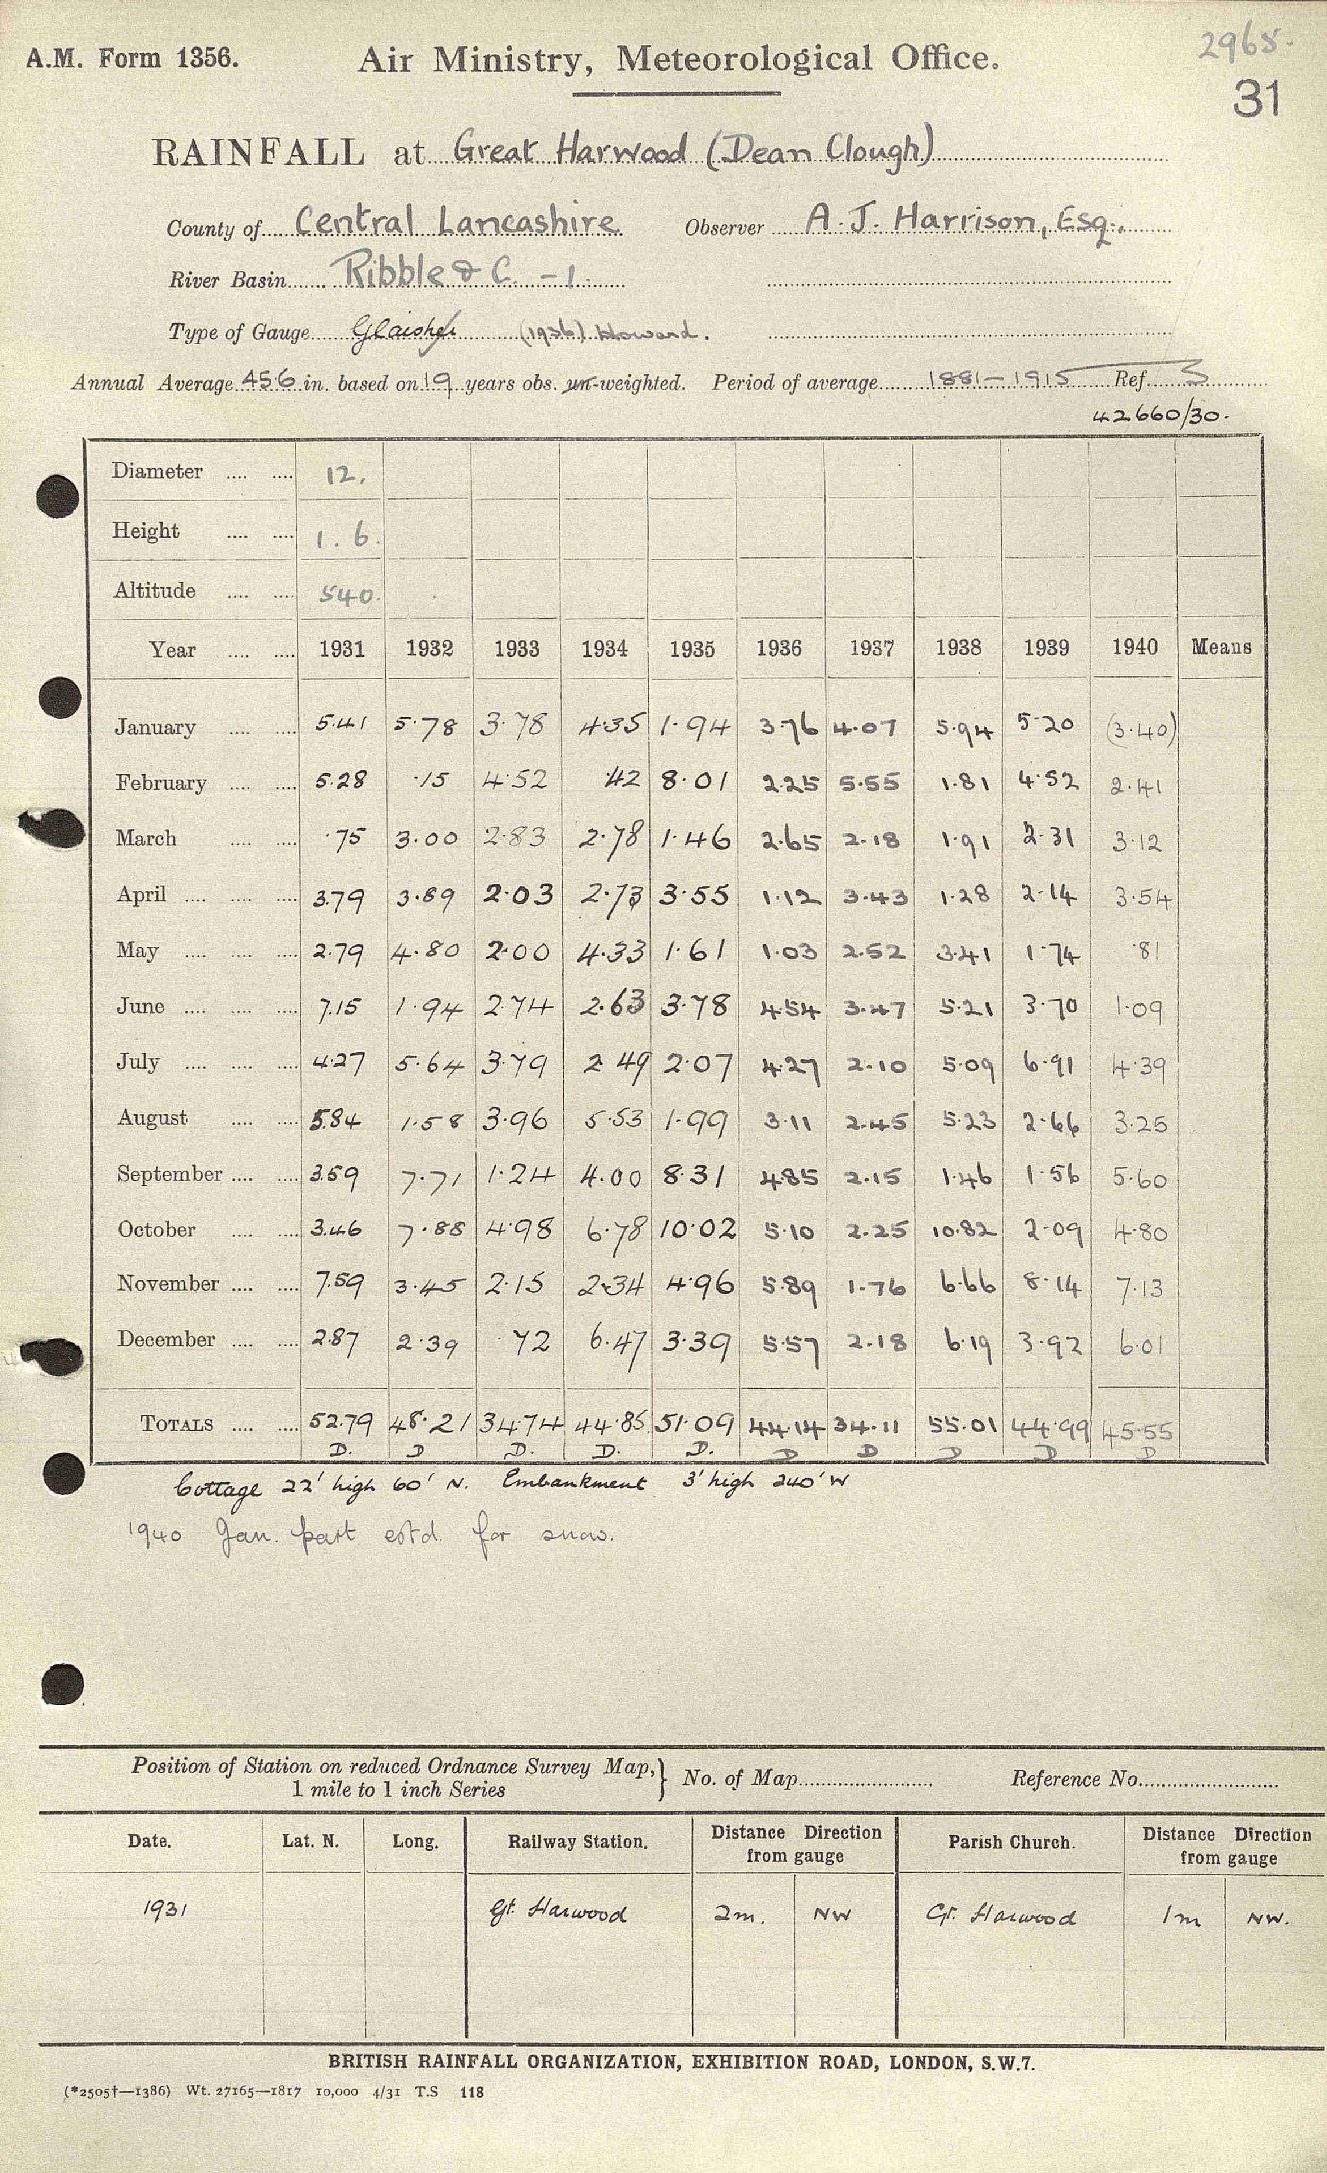 2965.
A.M. Form 1356. Air Ministry, Meteorological Office.
31
RAINFALL at Great Harwood (Dean Clough)
County of Central Lancashire Observer A. J. Harrison, Esq.,
River Basin Ribble & C. - 1.
Type of Gauge Glaisher (1936) Howard.
Annual Average 45.6 in. based on 19 years obs. un-weighted. Period of average 1881-1915 Ref. 3
42660/30.
Diameter 12.
Height 1.6.
Altitude 540.
Year 1931 1932 1933 1934 1935 1936 1937 1938 1939 1940 Means
January 5.41 5.78 3.78 4.35 1.94 3.76 4.07 5.94 5.20 (3.40)
February 5.28 .15 4.52 .42 8.01 2.25 5.55 1.81 4.52 2.41
March .75 3.00 2.83 2.78 1.46 2.65 2.18 1.91 2.31 3.12
April 3.79 3.89 2.03 2.73 3.55 1.12 3.43 1.28 2.14 3.54
May 2.79 4.80 2.00 4.33 1.61 1.03 2.52 3.41 1.74 .81
June 7.15 1.94 2.74 2.63 3.78 4.54 3.47 5.21 3.70 1.09
July 4.27 5.64 3.79 2.49 2.07 4.27 2.10 5.09 6.91 4.39
August 5.84 1.58 3.96 5.53 1.99 3.11 2.45 5.23 2.66 3.25
September 3.59 7.71 1.24 4.00 8.31 4.85 2.15 1.46 1.56 5.60
October 3.46 7.88 4.98 6.78 10.02 5.10 2.25 10.82 2.09 4.80
November 7.59 3.45 2.15 2.34 4.96 5.89 1.76 6.66 8.14 7.13
December 2.87 2.39 .72 6.47 3.39 5.57 2.18 6.19 3.92 6.01
TOTALS 52.79 48.21 34.74 44.85 51.09 44.14 34.11 55.01 44.99 45.55
D. D D. D. D. D D D D D
Cottage 22' high 60' N. Embankment 3' high 240' W
1940 Jan. part estd. for snow.
Position of Station on reduced Ordnance Survey Map, } No. of Map Reference No.
1 mile to 1 inch Series
Date. Lat. N. Long. Railway Station. Distance Direction from gauge Parish Church. Distance Direction from gauge
1931 Gt. Harwood 2m. NW Gt. Harwood 1m NW.
BRITISH RAINFALL ORGANIZATION, EXHIBITION ROAD, LONDON, S.W.7.
(*2505†—1386) Wt. 27165—1817 10,000 4/31 T.S 118